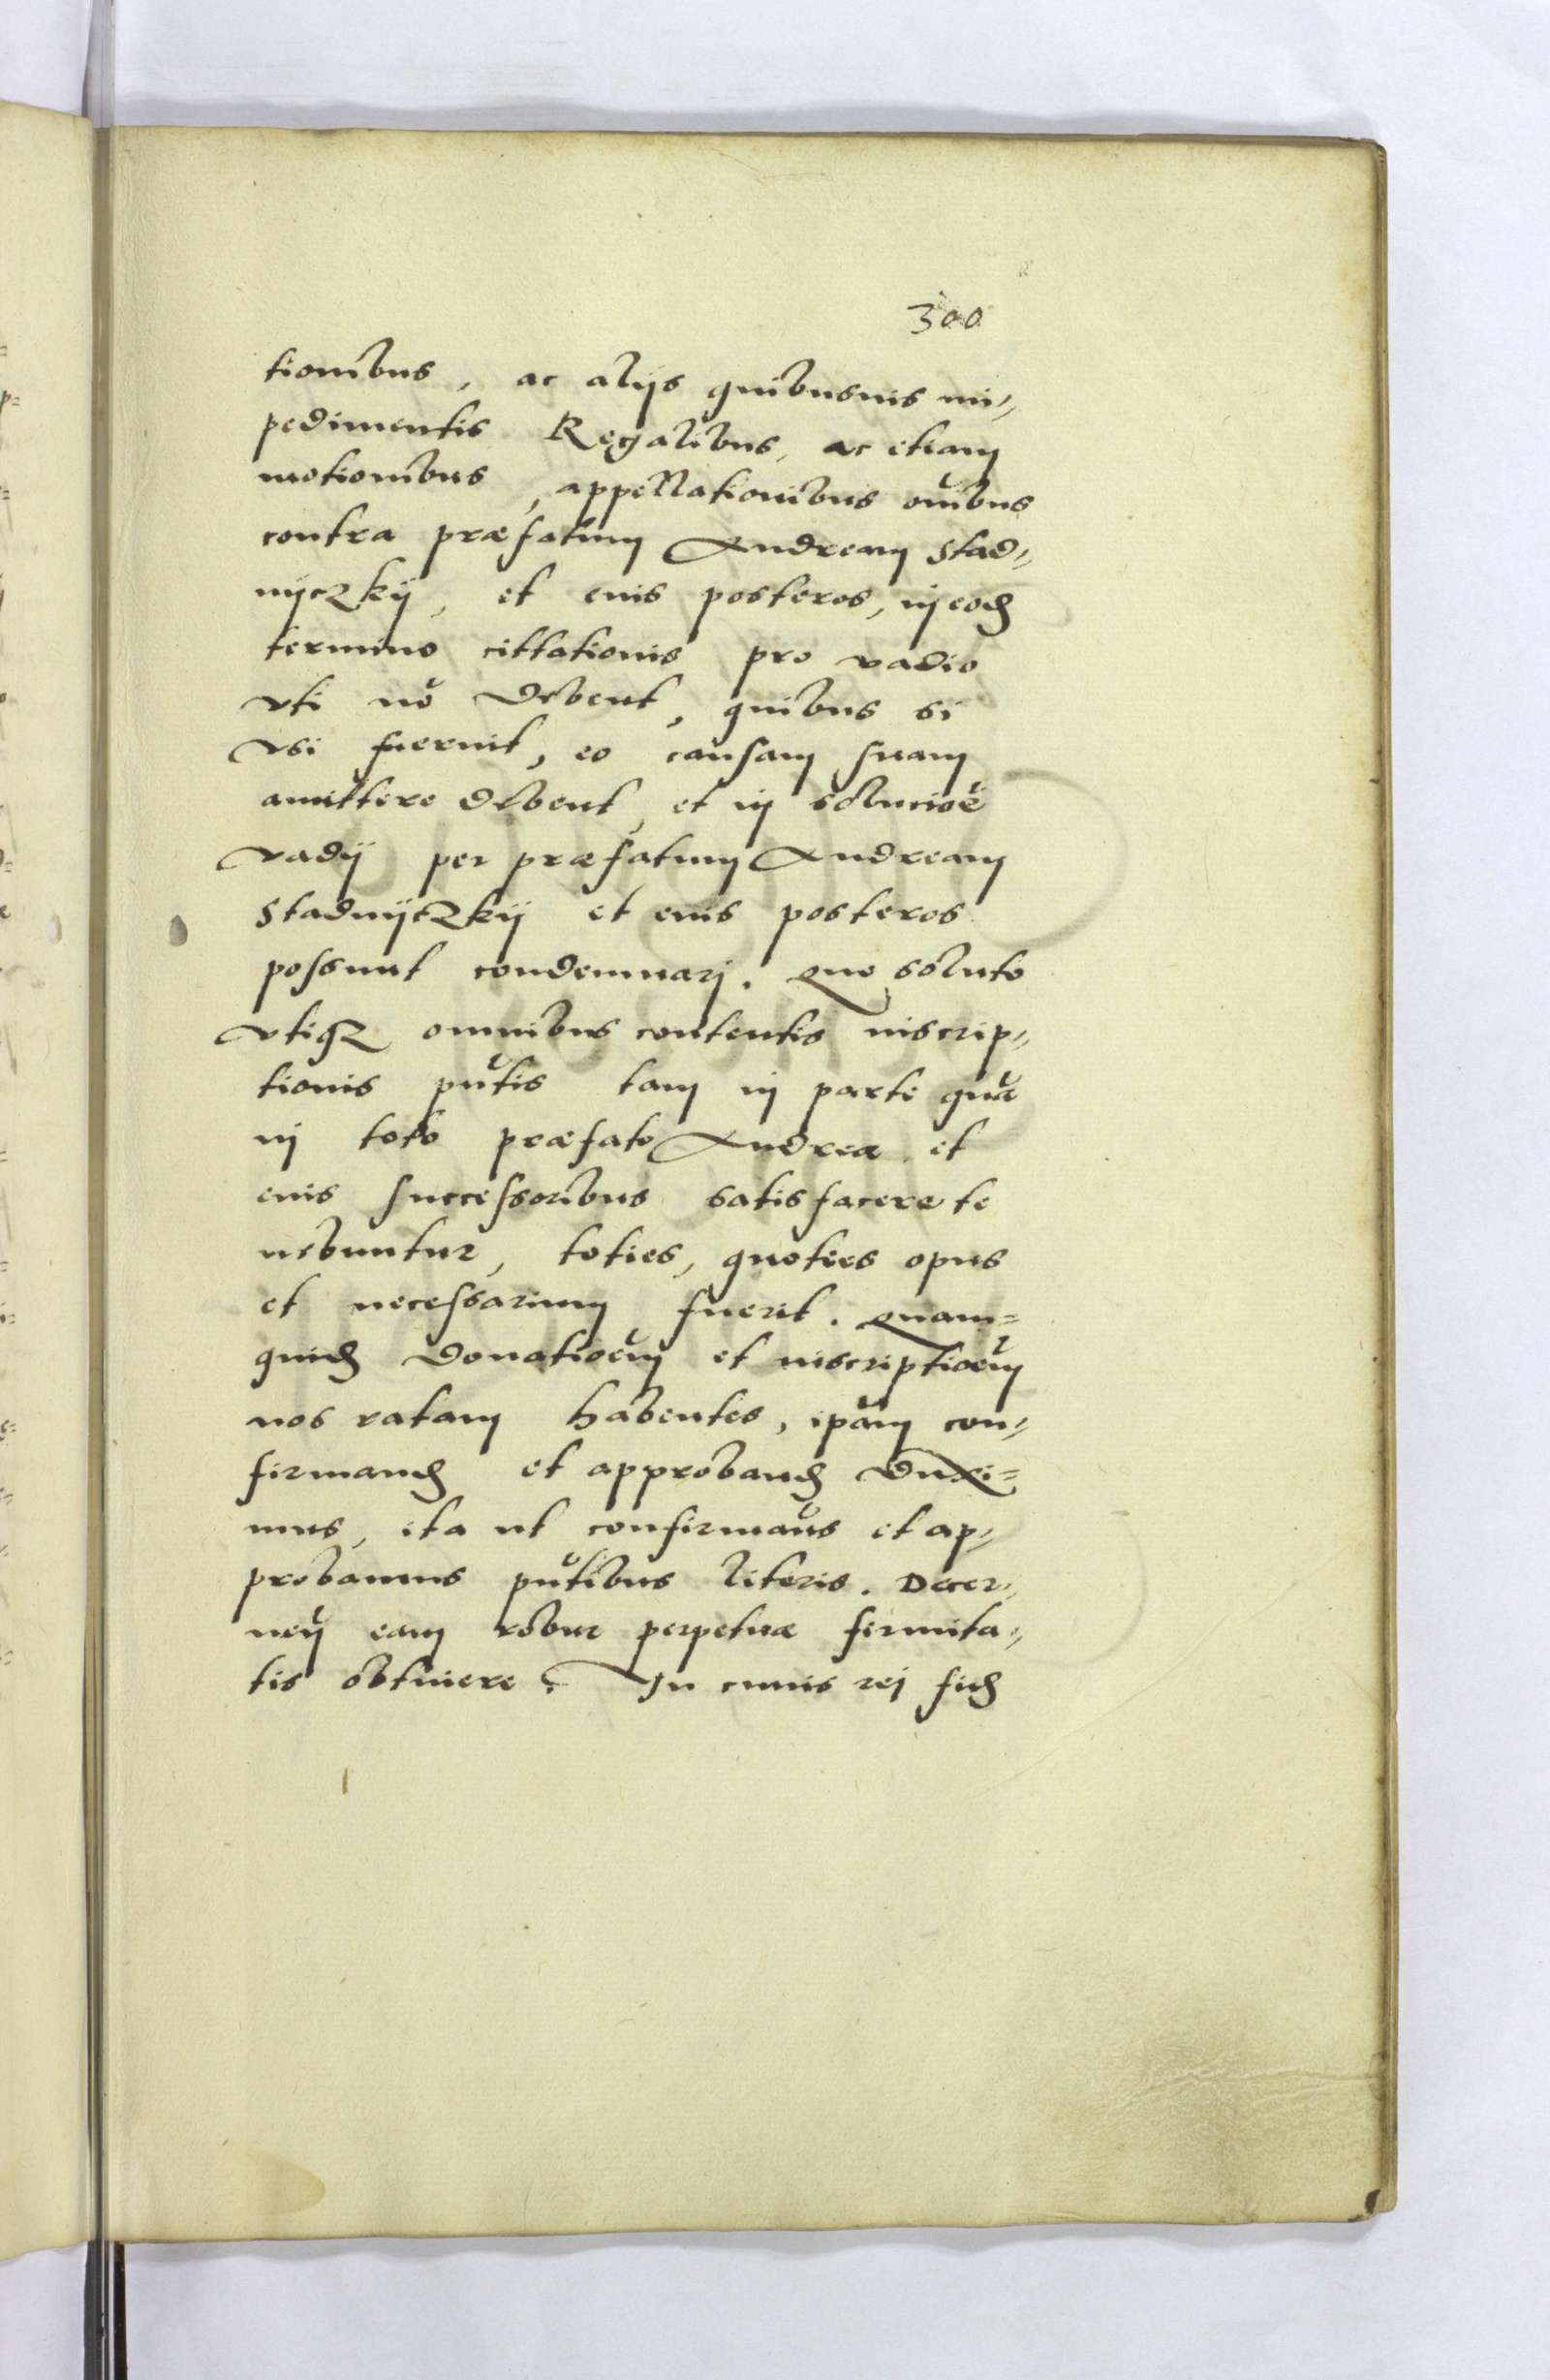 300
tionibus, ac alijs quibusuis im„
pedimentis Regalibus, ac etiam
motionibus, appellationibus oĩbus
contra præfatum Andream Stad„
nyczkij, et eius posteros, in eod
termino cittationis pro vadio
vti nõ debent, quibus si
vsi fuerint, eo causam suam
amittere debent, et in solucioẽ
vadij per præfatum Andream
Stadnyczkij et eius posteros
possunt condemnari. Quo soluto
vtiqz omnibus contentis inscrip„
tionis pñtis tam in parte quã
in toto præfato Andreæ et
eius successoribus satisfacere te
nebuntur, toties, quoties opus
et necessarium fuerit. Quam=
quid donatioẽm et inscriptioẽm
nos ratam habentes, ipãm con„
firmand et approband duxi=
mus, ita ut confirmaũs et ap„
probamus pñtibus literis. Decer„
neñ eam robur perpetuæ firmita„
tis obtinere. In cuius rei fid